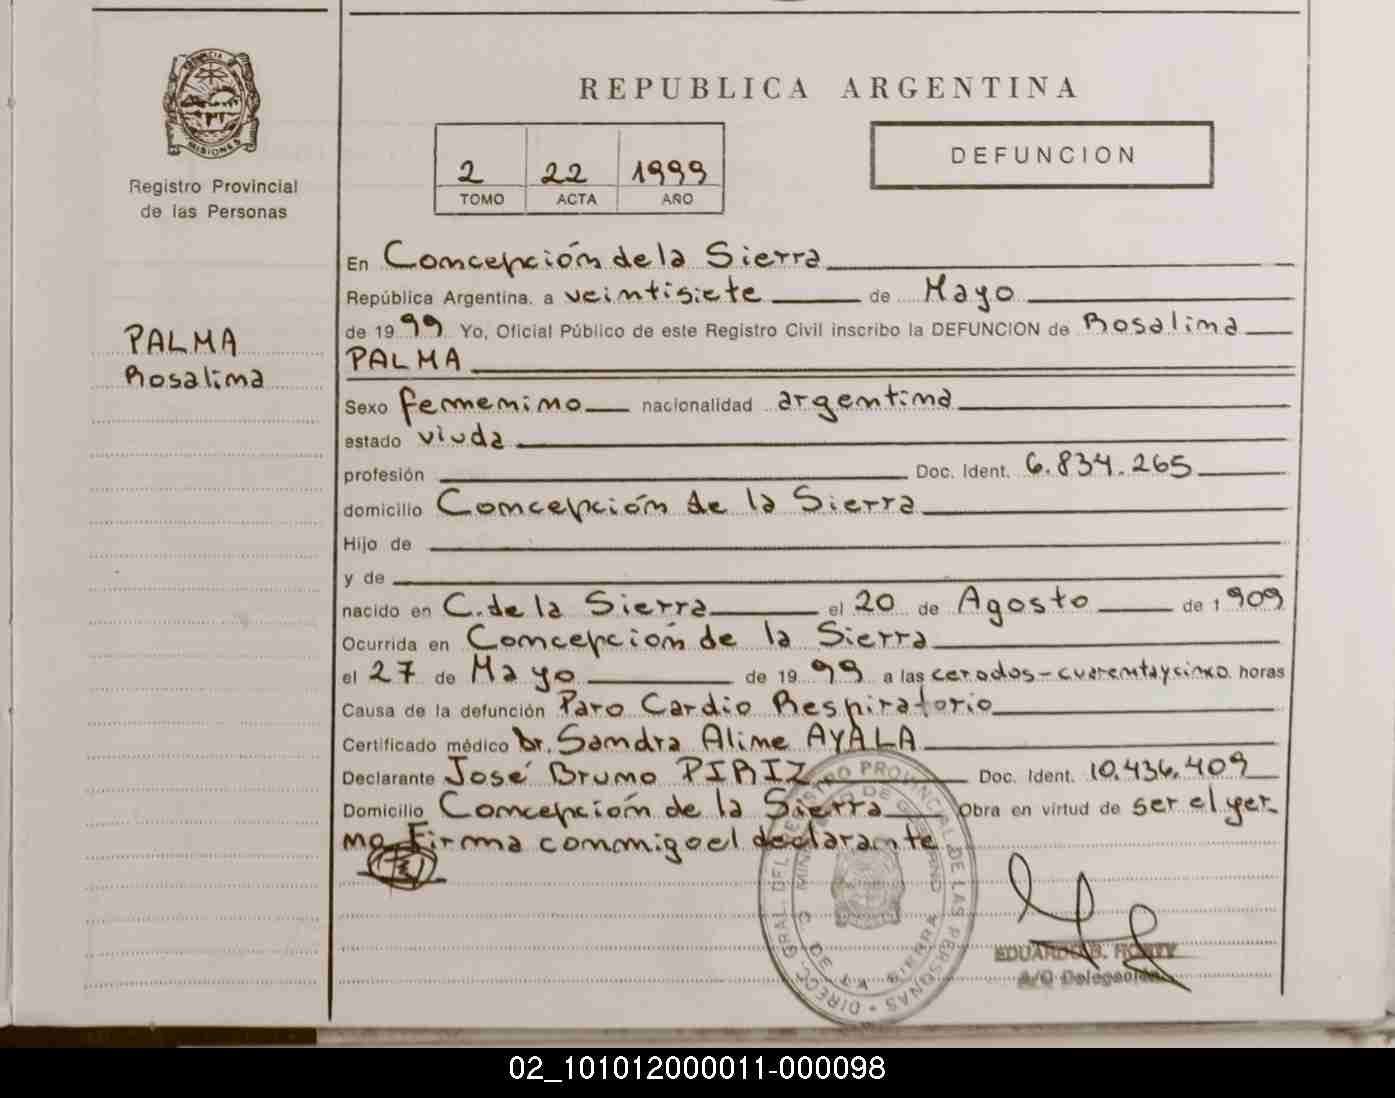 PROVINCIA DE
MISIONES
Registro Provincial
de las Personas
PALMA
Rosalina
REPUBLICA ARGENTINA
2 22 1999
TOMO ACTA AÑO
DEFUNCION
En Concepción de la Sierra
República Argentina. a veintisiete de Mayo
de 1999 Yo, Oficial Público de este Registro Civil inscribo la DEFUNCION de Rosalina
PALMA
Sexo femenino nacionalidad argentina
estado viuda
profesión Doc. Ident. 6.834.265
domicilio Concepción de la Sierra
Hijo de
y de
nacido en C. de la Sierra el 20 de Agosto de 1909
Ocurrida en Concepción de la Sierra
el 27 de Mayo de 1999 a las cerodos-cuarentaycinco horas
Causa de la defunción Paro Cardio Respiratorio
Certificado médico Dr. Sandra Aline AYALA
Declarante José Bruno PIRIZ Doc. Ident. 10.436.409
Domicilio Concepción de la Sierra Obra en virtud de ser el yer-
no Firma conmigo el declarante
DIRECC. GRAL. DEL REGISTRO PROVINCIAL DE LAS PERSONAS
C. DE LA SIERRA
EDUARDO B.
A/C Delegación
02_101012000011-000098